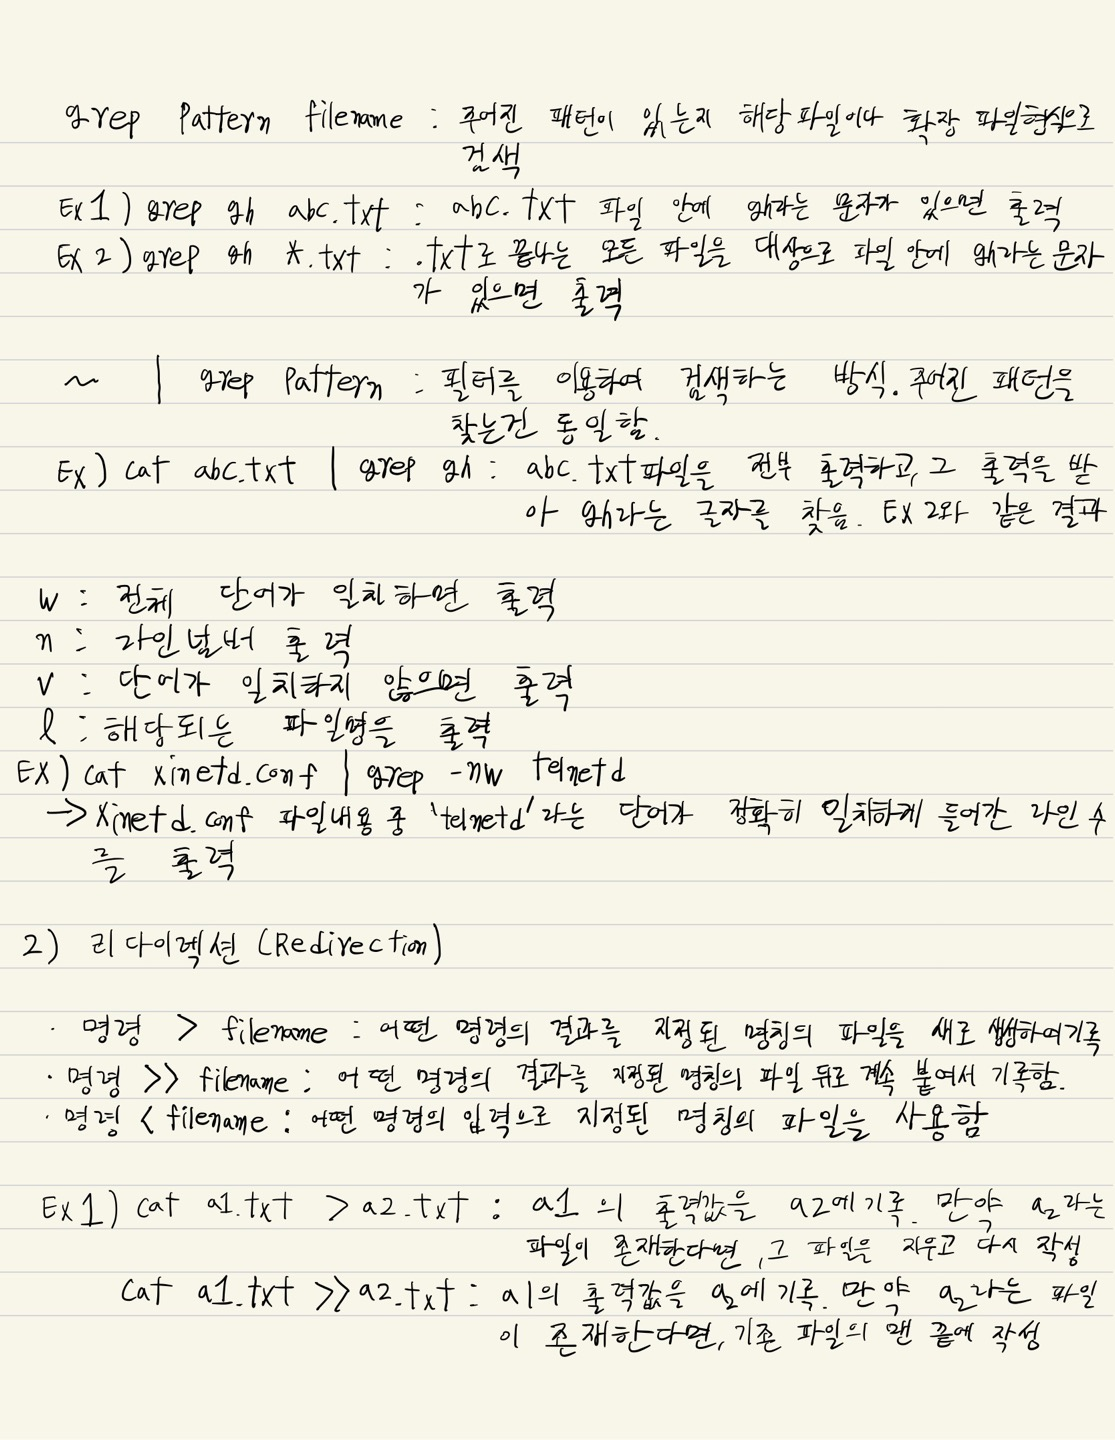 grep Pattern filename : 주어진 패턴이 있는지 해당 파일이나 확장 파일형식으로
검색
Ex1) grep gh abc.txt : abc.txt 파일 안에 gh라는 문자가 있으면 출력
Ex2) grep gh *.txt : .txt로 끝나는 모든 파일을 대상으로 파일 안에 gh라는 문자
가 있으면 출력
~ | grep Pattern : 필터를 이용하여 검색하는 방식. 주어진 패턴을
찾는건 동일함.
Ex) cat abc.txt | grep gh : abc.txt파일을 전부 출력하고, 그 출력을 받
아 gh라는 글자를 찾음. Ex 2와 같은 결과
w : 전체 단어가 일치하면 출력
n : 라인넘버 출력
v : 단어가 일치하지 않으면 출력
l : 해당되는 파일명을 출력
EX) cat xinetd.conf | grep -nw telnetd
→ xinetd.conf 파일내용 중 'telnetd'라는 단어가 정확히 일치하게 들어간 라인 수
를 출력
2) 리다이렉션 (Redirection)
· 명령 > filename : 어떤 명령의 결과를 지정된 명칭의 파일을 새로 생성하여기록
· 명령 >> filename : 어떤 명령의 결과를 지정된 명칭의 파일 뒤로 계속 붙여서 기록함.
· 명령 < filename : 어떤 명령의 입력으로 지정된 명칭의 파일을 사용함
Ex1) cat a1.txt > a2.txt : a1의 출력값을 a2에기록. 만약 a2라는
파일이 존재한다면, 그 파일을 지우고 다시 작성
cat a1.txt >> a2.txt : a1의 출력값을 a2에 기록. 만약 a2라는 파일
이 존재한다면, 기존 파일의 맨 끝에 작성